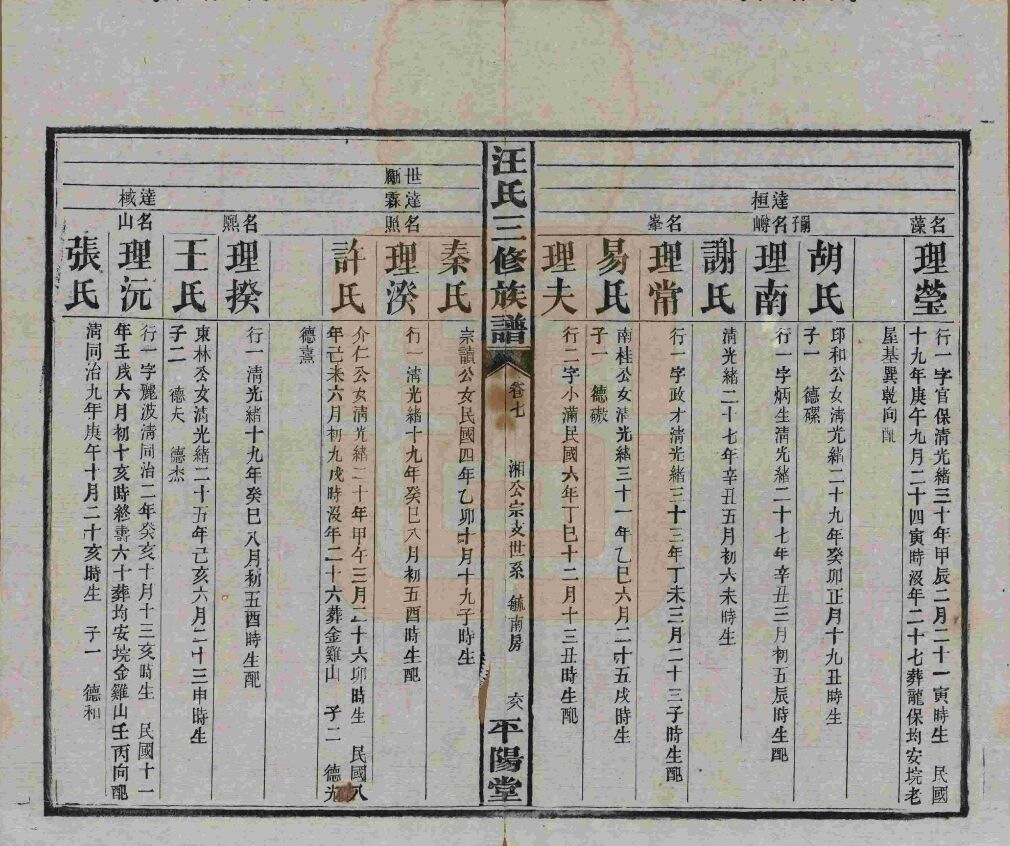 名藻
理瑩
行一字官保清光緒三十年甲辰二月二十一寅時生 民國
十九年庚午九月二十四寅時沒年二十七葬龍保均安垸老
屋基巽乾向配
胡氏
邱和公女清光緒二十九年癸卯正月十九丑時生
子一 德礤
達桓
名嶟
理南
行一字炳生清光緒二十七年辛丑三月初五辰時生配
謝氏
清光緒二十七年辛丑五月初六未時生
名峯
理常
行一字政才清光緒三十三年丁未三月二十三子時生配
易氏
南桂公女清光緒三十一年乙巳六月二十五戌時生
子一 德礅
理夫
行二字小滿民國六年丁巳十二月十三丑時生配
汪氏三修族譜
卷七
湘公宗支世系 毓南房
平陽堂
秦氏
宗讀公女民國四年乙卯十月十九子時生
世
達霖
名照
理湀
行一清光緒十九年癸巳八月初五酉時生配
許氏
介仁公女清光緒二十年甲午三月二十六卯時生 民國八
年己未六月初九戌時沒年二十六葬金雞山 子二 德光
德熹
名熙
理揆
行一清光緒十九年癸巳八月初五酉時生配
王氏
東林公女清光緒二十五年己亥六月二十三申時生
子二 德夫 德杰
達棫
名山
理沅
行一字麗波清同治二年癸亥十月十三亥時生 民國十一
年壬戌六月初十亥時終壽六十葬均安垸金雞山壬丙向配
張氏
清同治九年庚午十月二十亥時生 子一 德和